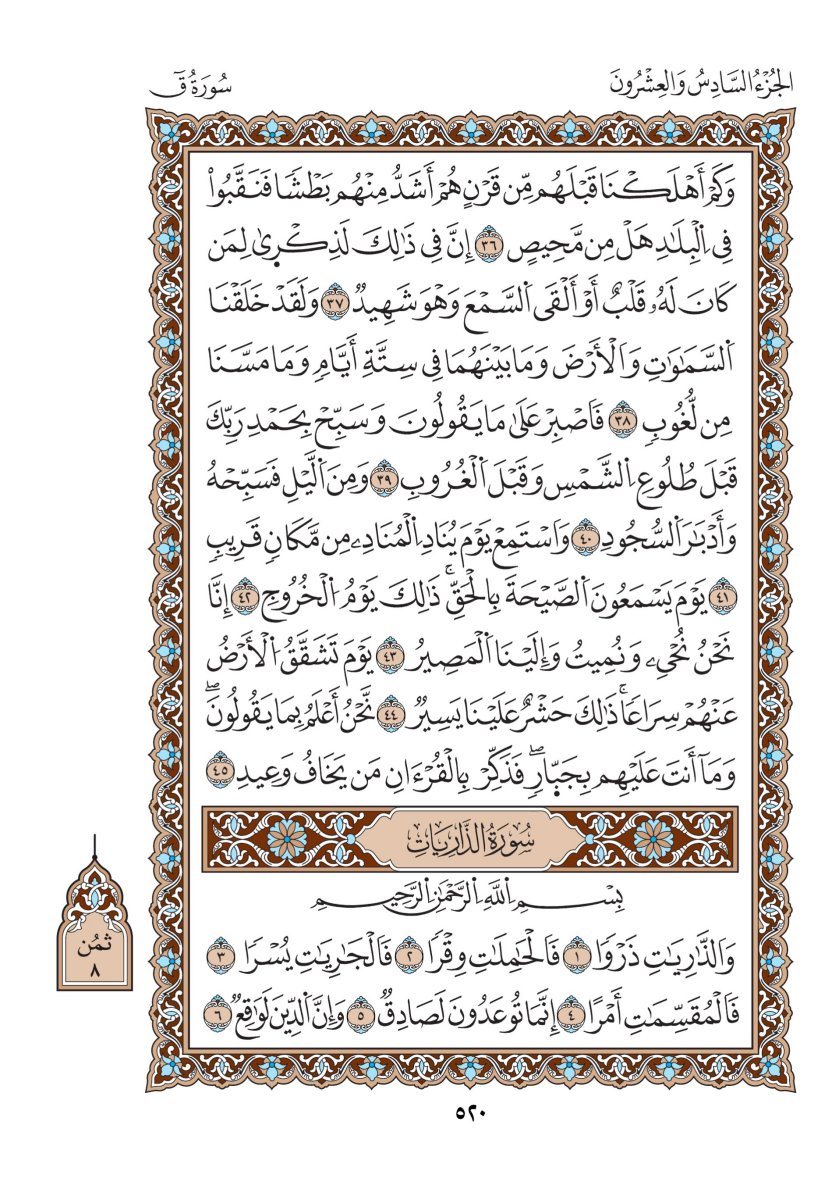 الجُزْءُ السَّادِسُ وَالعِشْرُونَ
سُورَةُ قٓ
وَكَمْ أَهْلَكْنَا قَبْلَهُم مِّن قَرْنٍ هُمْ أَشَدُّ مِنْهُم بَطْشًا فَنَقَّبُوا۟
فِى ٱلْبِلَٰدِ هَلْ مِن مَّحِيصٍ ٣٦ إِنَّ فِى ذَٰلِكَ لَذِكْرَىٰ لِمَن
كَانَ لَهُۥ قَلْبٌ أَوْ أَلْقَى ٱلسَّمْعَ وَهْوَ شَهِيدٌ ٣٧ وَلَقَدْ خَلَقْنَا
ٱلسَّمَٰوَٰتِ وَٱلْأَرْضَ وَمَا بَيْنَهُمَا فِى سِتَّةِ أَيَّامٍ وَمَا مَسَّنَا
مِن لُّغُوبٍ ٣٨ فَٱصْبِرْ عَلَىٰ مَا يَقُولُونَ وَسَبِّحْ بِحَمْدِ رَبِّكَ
قَبْلَ طُلُوعِ ٱلشَّمْسِ وَقَبْلَ ٱلْغُرُوبِ ٣٩ وَمِنَ ٱلَّيْلِ فَسَبِّحْهُ
وَأَدْبَٰرَ ٱلسُّجُودِ ٤٠ وَٱسْتَمِعْ يَوْمَ يُنَادِ ٱلْمُنَادِۦ مِن مَّكَانٍ قَرِيبٍ
٤١ يَوْمَ يَسْمَعُونَ ٱلصَّيْحَةَ بِٱلْحَقِّ ۚ ذَٰلِكَ يَوْمُ ٱلْخُرُوجِ ٤٢ إِنَّا
نَحْنُ نُحْىِۦ وَنُمِيتُ وَإِلَيْنَا ٱلْمَصِيرُ ٤٣ يَوْمَ تَشَقَّقُ ٱلْأَرْضُ
عَنْهُمْ سِرَاعًا ۚ ذَٰلِكَ حَشْرٌ عَلَيْنَا يَسِيرٌ ٤٤ نَّحْنُ أَعْلَمُ بِمَا يَقُولُونَ ۖ
وَمَآ أَنتَ عَلَيْهِم بِجَبَّارٍ ۖ فَذَكِّرْ بِٱلْقُرْءَانِ مَن يَخَافُ وَعِيدِ ٤٥
سُورَةُ الذَّارِيَاتِ
بِسْمِ ٱللَّهِ ٱلرَّحْمَٰنِ ٱلرَّحِيمِ
ثُمُن
٨
وَٱلذَّٰرِيَٰتِ ذَرْوًا ١ فَٱلْحَٰمِلَٰتِ وِقْرًا ٢ فَٱلْجَٰرِيَٰتِ يُسْرًا ٣
فَٱلْمُقَسِّمَٰتِ أَمْرًا ٤ إِنَّمَا تُوعَدُونَ لَصَادِقٌ ٥ وَإِنَّ ٱلدِّينَ لَوَٰقِعٌ ٦
٥٢٠